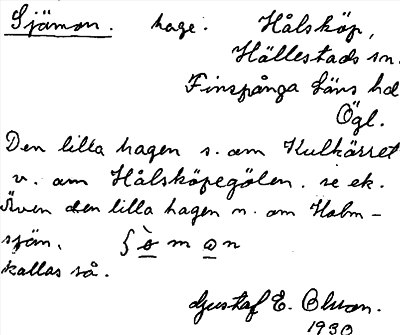 Sjömon. hage. Hålsköp,
Hällestads sn.
Finspånga läns hd
Ögl.
Den lilla hagen s. om Kulkärret
v. om Hålsköpegölen. se ek.
Även den lilla hagen n. om Holm-
sjön.
kallas så.
Gustaf E. Olsson.
1930